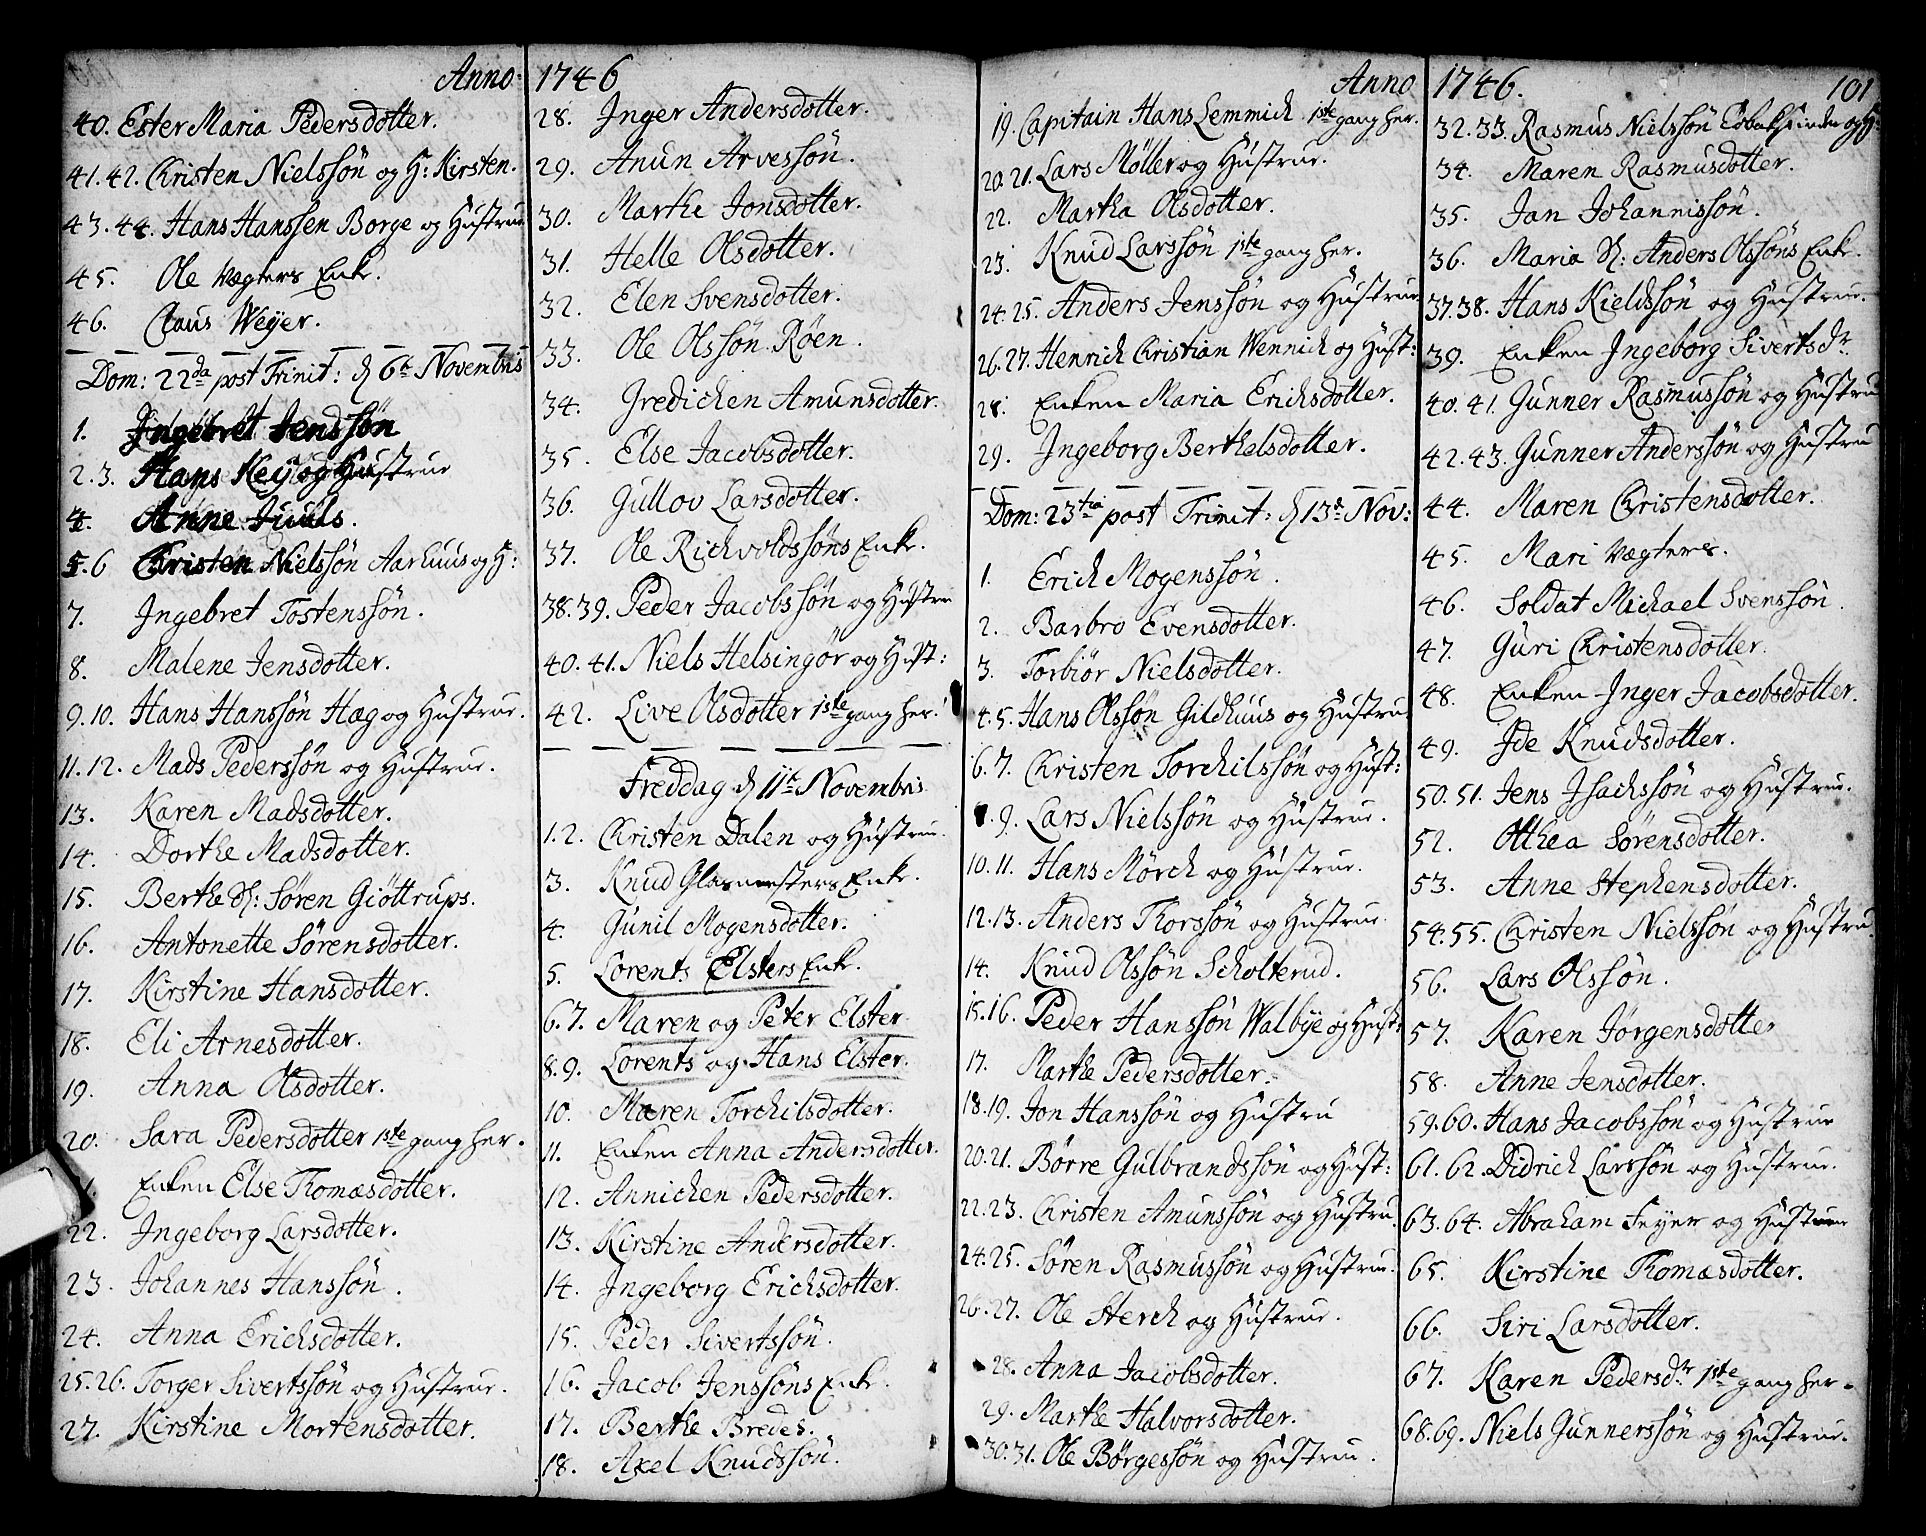 Anno 1746
40. Ester Maria Pedersdotter.
41. 42. Christen Nielssön og H: Kirsten.
43. 44. Hans Hanssen Borge og Hustrue
45. Ole Vægters Enke.
46. Claus Weyer.
Dom: 22da post Trinit: d 6te Novembris
1. Ingebret Jenssön
2. 3. Hans Key og Hustrue
4. Anne Juuls.
5. 6 Christen Nielssön Aarhuus og H:
7. Ingebret Tostenssön.
8. Malene Jensdotter.
9. 10. Hans Hanssön Hæg og Hustrue.
11. 12. Mads Pederssön og Hustrue.
13. Karen Madsdotter.
14. Dorthe Madsdotter.
15. Berthe Sl: Sören Giöttrups.
16. Antonette Sörensdotter.
17. Kirstine Hansdotter.
18. Eli Arnesdotter.
19. Anna Olsdotter.
20. Sara Pedersdotter 1ste gang her.
Enken Else Thomæsdotter.
22. Ingeborg Larsdotter.
23. Johannes Hanssön.
24. Anna Erichsdotter.
25. 26. Torger Sivertssön og Hustrue.
27. Kirstine Mortensdotter.
28. Inger Andersdotter.
29. Anun Arvessön.
30. Marthe Jonsdotter.
31. Helle Olsdotter.
32. Elen Svensdotter.
33. Ole Olssön Röen.
34. Gredichen Amunsdotter.
35. Else Jacobsdotter.
36. Gullov Larsdotter.
37. Ole Richvoldssöns Enke.
38. 39. Peder Jacobssön og Hustru
40. 41. Niels Helsingör og Hust:
42. Live Olsdotter 1ste gang her.
Freddag d 11te Novembris
1. 2. Christen Dalen og Hustrue.
3. Knud Glasmesters Enke.
4. Gunil Mogensdotter.
5. Lorents Elsters Enke.
6. 7. Maren og Peter Elster
8. 9. Lorents og Hans Elster.
10. Maren Torchilsdotter.
11. Enken Anna Andersdotter.
12. Annichen Pedersdotter.
13. Kirstine Andersdotter.
14. Ingeborg Erichsdotter.
15. Peder Sivertssön.
16. Jacob Jenssöns Enke.
17. Berthe Bredes.
18. Axel Knudssön.
Anno 1746. 101
19. Capitain Hans Lemmich 1ste gang her.
20. 21. Lars Möller og Hustrue.
22. Martha Olsdotter.
23. Knud Larssön 1ste gang her.
24. 25. Anders Jenssön og Hustrue
26. 27. Henrich Christian Wennich og Hust:
28. Enken Maria Erichsdotter.
29. Ingeborg Berthelsdotter.
Dom: 23tia post Trinit: d 13te Nov:
1. Erich Mogenssön.
2. Barbro Evensdotter.
3. Torbiör Nielsdotter.
4. 5. Hans Olssön Gildhuus og Hustru
6. 7. Christen Torchilssön og Hust:
9. Lars Nielssön og Hustrue.
10. 11. Hans Mörch og Hustrue.
12. 13. Anders Thorssön og Hustrue.
14. Knud Olssön Scholterud.
15. 16. Peder Hanssön Walbye og Hustr
17. Marthe Pedersdotter.
18. 19. Jon Hanssön og Hustru
20. 21. Börre Gulbrandssön og Hust:
22. 23. Christen Amunssön og Hustru.
24. 25. Sören Rasmussön og Hustrue.
26. 27. Ole Sterch og Hustrue.
28. Anna Jacobsdotter.
29. Marthe Halvorsdotter.
30. 31. Ole Börgessön og Hustrue.
32. 33. Rasmus Nielssön og H:
34. Maren Rasmusdotter.
35. Jan Johannissön.
36. Maria Sl: Anders Olssöns Enke.
37. 38. Hans Kieldssön og Hustrue.
39. Enken Ingeborg Sivertsdr.
40. 41. Gunner Rasmussön og Hustru
42. 43. Gunner Anderssön og Hustru
44. Maren Christensdotter.
45. Mari Vægters.
46. Soldat Michael Svenssön.
47. Guri Christensdotter.
48. Enken Inger Jacobsdotter.
49. Ide Knudsdotter.
50. 51. Jens Isachssön og Hustrue.
52. Otthea Sörensdotter.
53. Anne Stephensdotter.
54. 55. Christen Nielssön og Hustru.
56. Lars Olssön.
57. Karen Jörgensdotter
58. Anne Jensdotter.
59. 60. Hans Jacobssön og Hustrue
61. 62 Didrich Larssön og Hustrue.
63. 64. Abraham Feyer og Hustrue
65. Kirstine Thomæsdotter.
66. Siri Larsdotter.
67. Karen Pedersdr 1ste gang her.
68. 69. Niels Gunnerssön og Hustrue.